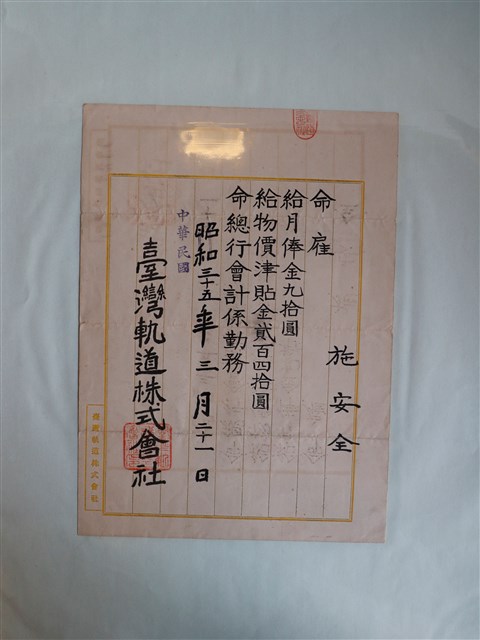 施安全
命雇
給月俸金九拾圓
給物價津貼金貳百四拾圓
命總行會計係勤務
中華民國
昭和三十五年三月二十一日
臺灣軌道株式會社